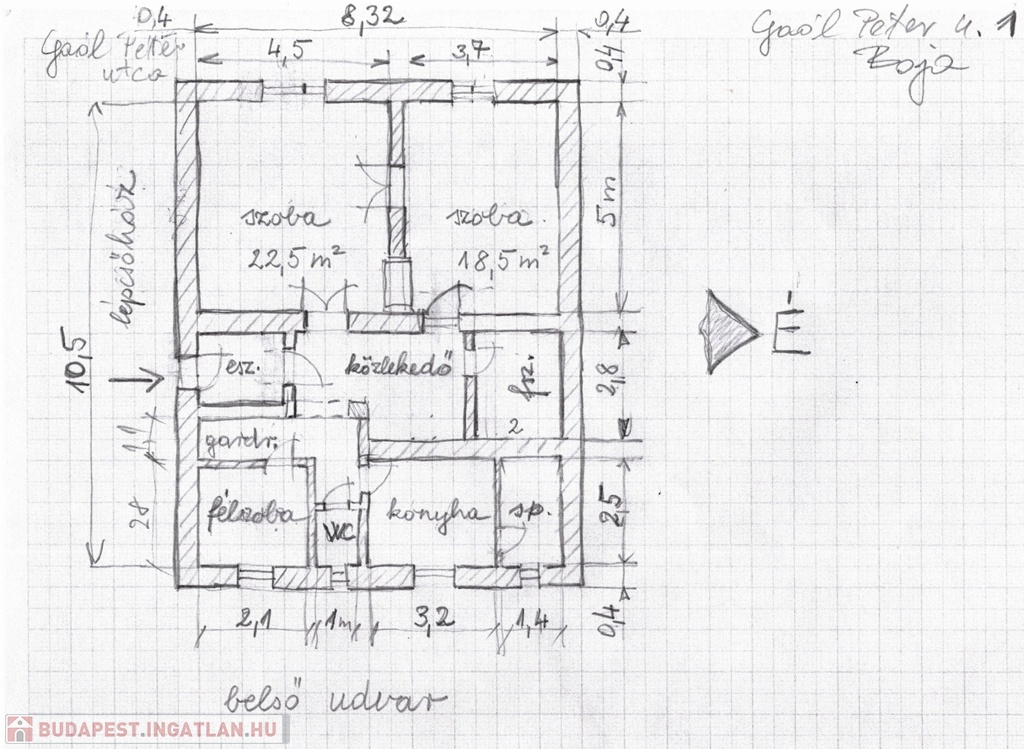 0,4
8,32
0,4
Gaál Péter u. 1
Baja
Gaál Péter
utca
4,5
3,7
0,4
lépcsőház
szoba
22,5 m²
szoba
18,5 m²
5 m
É
10,5
esz.
közlekedő
fsz.
2,8
2
gardr.
28
félszoba
WC
konyha
sp.
2,5
2,1
1m
3,2
1,4
0,4
belső udvar
BUDAPEST.INGATLAN.HU